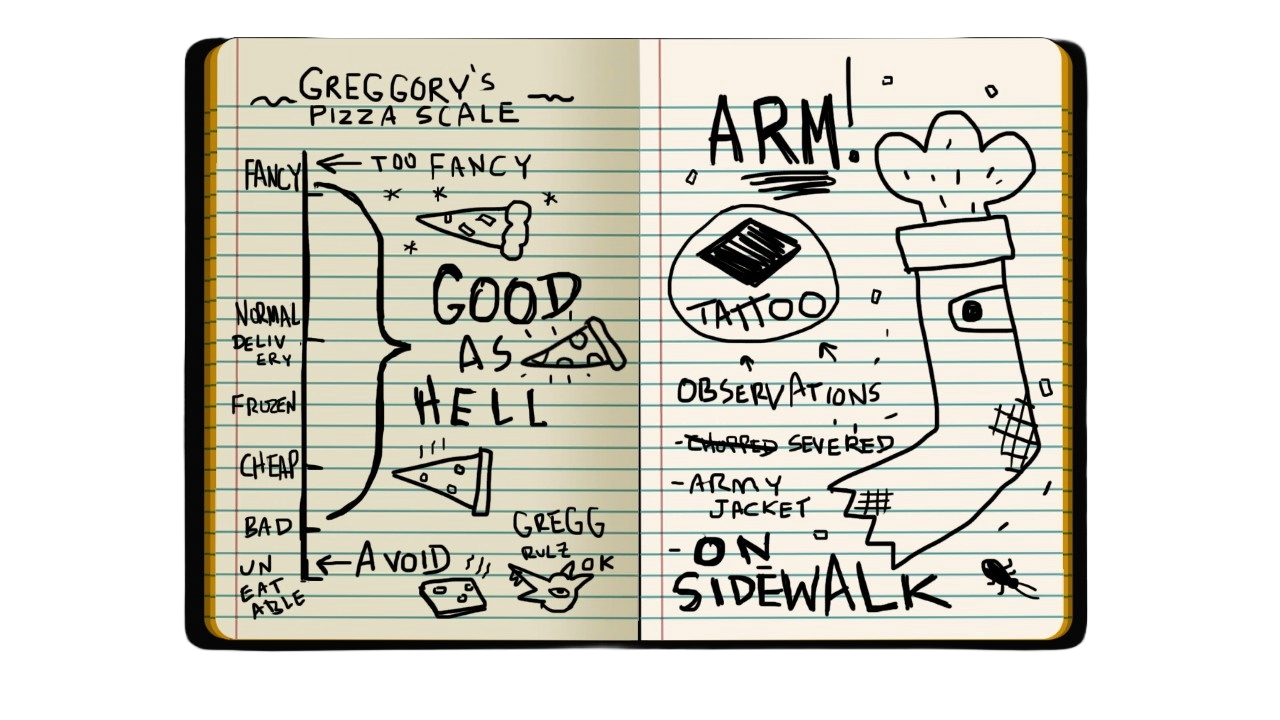 GREGGORY'S
PIZZA SCALE
FANCY
← TOO FANCY
GOOD
NORMAL
DELIV
ERY
AS
HELL
FROZEN
CHEAP
BAD
GREGG
RULZ
OK
UN
EAT
ABLE
← AVOID
ARM!
TATTOO
OBSERVATIONS
- CHOPPED SEVERED
- ARMY
JACKET
- ON
SIDEWALK